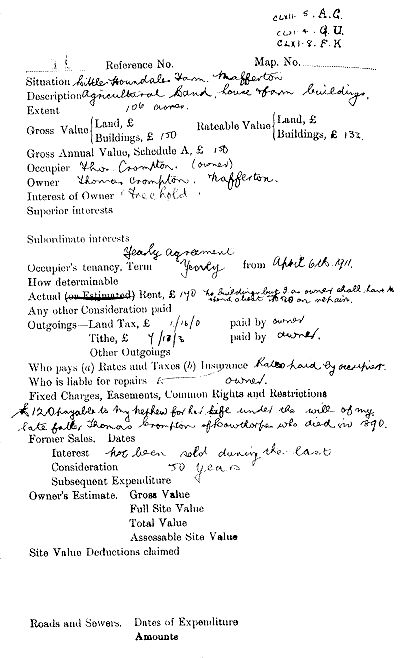 CLXII. 5. A.G.
CLXI. 4. G.U.
CLXI. 8. F.K
Reference No. Map. No.
Situation Little Houndales Farm. Nafferton
Description Agricultural Land, house & farm buildings.
Extent 106 acres.
Gross Value {Land, £ Rateable Value {Land, £
Buildings, £ 150 Buildings, £ 132
Gross Annual Value, Schedule A, £ 150
Occupier Thos. Crompton. (owner)
Owner Thomas Crompton. Nafferton.
Interest of Owner Freehold.
Superior interests
Subordinate interests
Yearly agreement
Occupier's tenancy, Term Yearly from April 6th. 1911.
How determinable
Actual (or Estimated) Rent, £ 190 no buildings but I as owner shall have to
spend about £20 on repairs.
Any other Consideration paid
Outgoings—Land Tax, £ 1/16/0 paid by owner
Tithe, £ paid by owner.
Other Outgoings
Who pays (a) Rates and Taxes (b) Insurance Rates paid by occupier.
Who is liable for repairs owner.
Fixed Charges, Easements, Common Rights and Restrictions
£120 payable to my nephew for his life under the will of my
late father Thomas Crompton of Gowthorpe who died in 1890.
Former Sales. Dates
Interest not been sold during the last
Consideration 50 years
Subsequent Expenditure
Owner's Estimate. Gross Value
Full Site Value
Total Value
Assessable Site Value
Site Value Deductions claimed
Roads and Sewers. Dates of Expenditure
Amounts